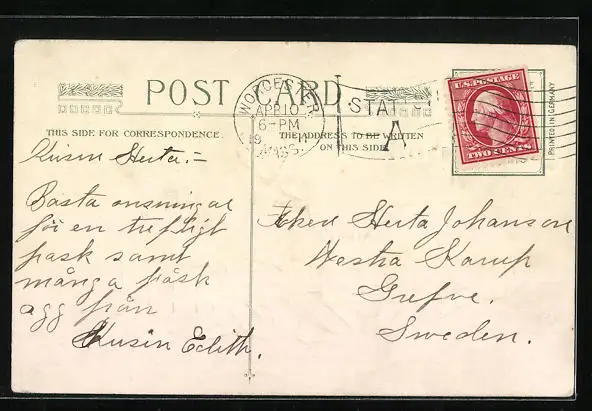 POST CARD
WORCESTER
APR 10
6-PM
19 11
MASS.
STATION
A
U.S. POSTAGE
TWO CENTS
PRINTED IN GERMANY
THIS SIDE FOR CORRESPONDENCE.
THE ADDRESS TO BE WRITTEN
ON THIS SIDE
Kusin Herta:=
Basta onsningar
för en trefligt
pask samt
många påsk
agg från
Kusin Edith.
Herta Johanson
Westra Karup
Grefve.
Sweden.